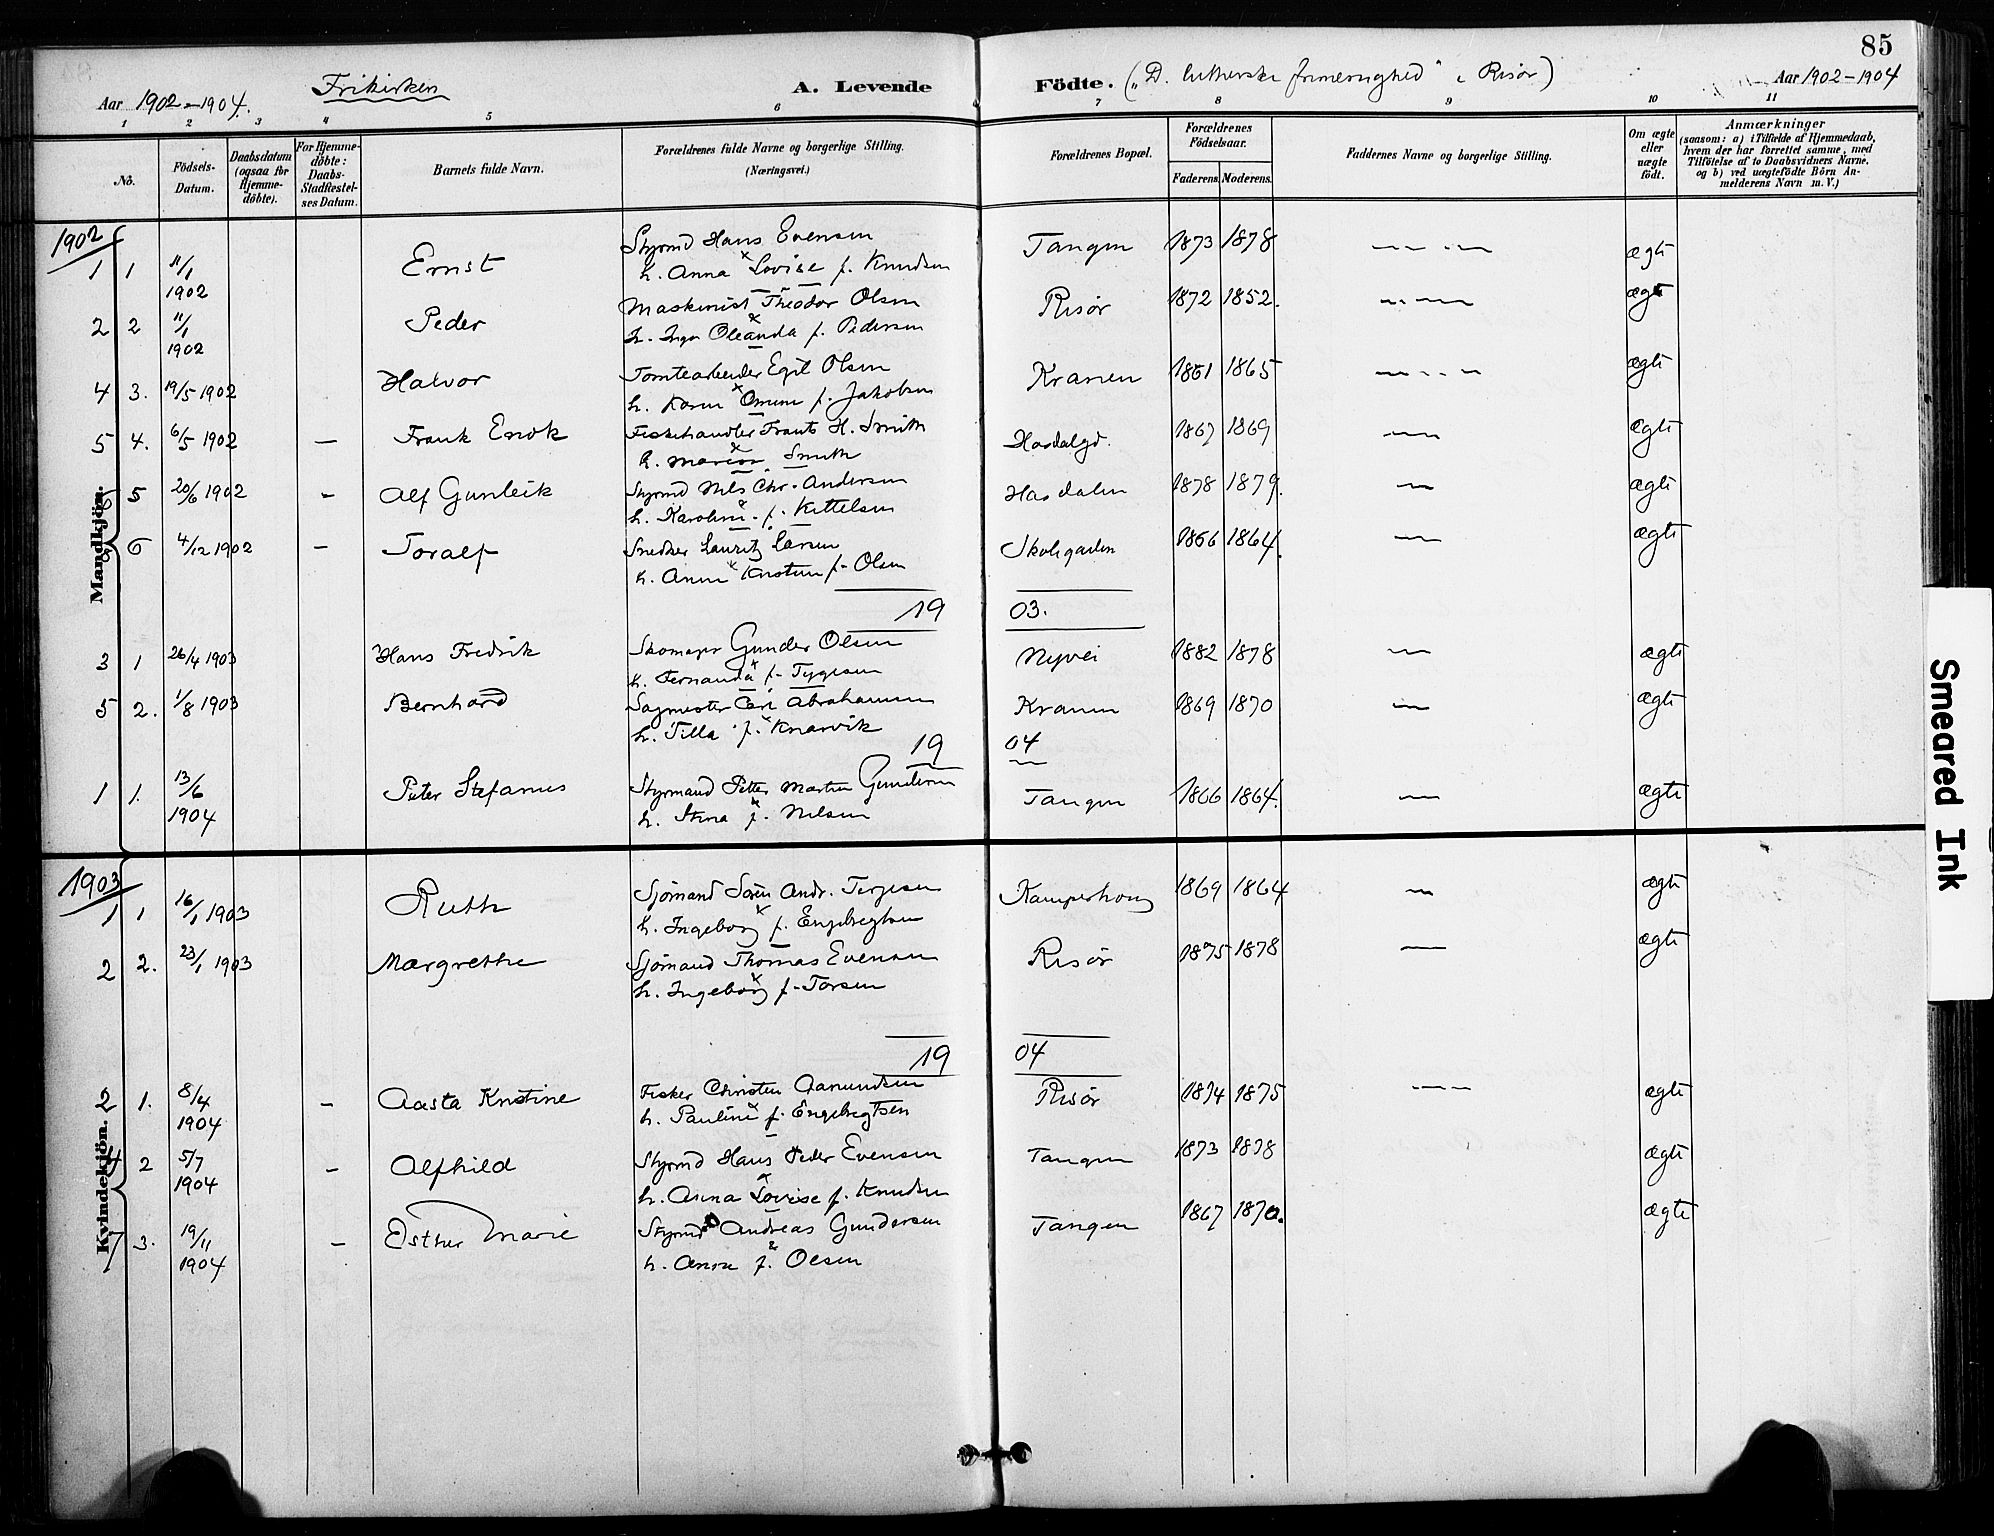 85
Aar 1902-1904. Frikirken A. Levende Födte. („D. lutherske frimenighed" i Risør) Aar 1902-1904
1 2 3 4 5 6 7 8 9 10 11
No. Födsels-Datum. Daabsdatum (ogsaa for Hjemme-döbte). For Hjemme-döbte: Daabs-Stadfæstel-ses Datum. Barnets fulde Navn. Forældrenes fulde Navne og borgerlige Stilling. (Næringsvei.) Forældrenes Bopæl. Forældrenes Födselsaar. Faderens. Moderens. Faddernes Navne og borgerlige Stilling. Om ægte eller uægte födt. Anmærkninger (saasom: a) i Tilfælde af Hjemmedaab, hvem der har forrettet samme, med Tilföielse af to Daabsvidners Navne. og b) ved uægtefödte Börn An-melderens Navn m. V.)
Mandkjön.
1902
1 1 11/1 1902 Ernst Styrmd Hans Evensen Tangen 1873 1878 ægte
h. Anna Lovise f. Knudsen
2 2 11/1 1902 Peder Maskinist Theodor Olsen Risør 1872 1852. ægte
h. Inga Oleanda f. Pedersen
4 3. 19/5 1902 Halvor Tomtearbeider Egil Olsen Kranen 1861 1865 ægte
h. Karen f. Jakobsen
5 4. 6/5 1902 – Frank Enok Fiskehandler Frants H. Smith Hasdalgd. 1867 1869 ægte
h. Smith
6 5 20/6 1902 – Alf Gunleik Styrmd Nels Chr. Andersen Hasdalen 1878 1879. ægte
h. Karoline f. Kittelsen
6 4/12 1902 – Toralf Snedker Lauritz Larsen Skolegaden 1866 1864. ægte
h. Anne Kristine f. Olsen
19 03.
3 1 26/4 1903 Hans Fredrik Skomager Gunder Olsen Nyvei 1882 1878 ægte
h. Fernanda f. Tygesen
5 2. 1/8 1903 Bernhard Sagmester Carl Abrahamsen Kranen 1869 1870 ægte
h. Tilla f. Knarvik
19 04
1 1. 13/6 1904 Peter Stefanus Styrmand Petter Martin Gundersen Tangen 1866 1864. ægte
h. Stina f. Nilsen
Kvindekjön.
1903
1 1 16/1 1903 Ruth Sjømand Søren Andr. Terjesen 1869 1864 ægte
h. Ingeborg f. Engebregtsen
2 2. 23/1 1903 Margrethe Sjømand Thomas Evensen Risør 1875 1878 ægte
h. Ingeborg f. Torsen
19 04
2 1. 8/4 1904 – Aasta Kristine Fisker Christen Aanundsen Risør 1874 1875 ægte
h. Pauline f. Engebregtsen
4 2 5/7 1904 – Alfhild Styrmd Hans Peder Evensen Tangen 1873 1878 ægte
h. Anna Lovise f. Knudsen
7 3. 19/11 1904 – Esther Marie Styrmd Andreas Gundersen Tangen 1867 1870. ægte
h. Anna f. Olsen
Smeared Ink